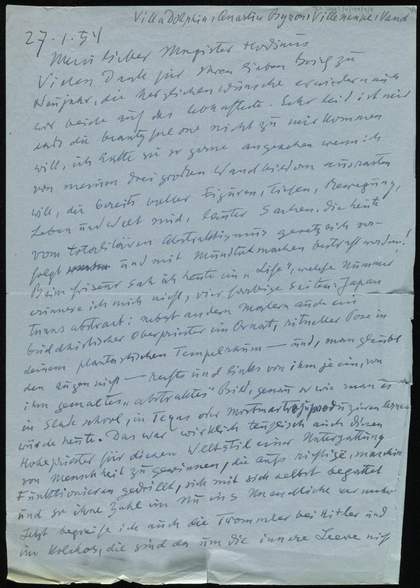 Villa Dolphin, Quartier Byron, Villeneuve, Vaud
27.1.54
Mein lieber Magister Hodinus
Vielen Dank für Ihren lieben Brief zu
Neujahr, die herzlichen Wünsche erwidern auch
wir beide auf das lebhafteste. Sehr leid ist mir
daß die nicht zu mir kommen
will, ich hätte sie so gerne angesehen wenn ich
von meinen drei großen Wandbildern ausrasten
will, die bereits voller Figuren, Tiefen, Bewegung,
Leben und Welt sind, lauter Sachen, die heute
vom totalitären Abstraktismus gesetzlich ver-
folgt und mit Mundtotmachen bestraft werden!
Beim Friseur sah ich heute in „Life", welche Nummer
erinnere ich mich nicht, vier farbige Seiten Japan
abstract: nebst andern Mastern auch ein
buddhistischer Oberpriester im Ornat, ritueller Pose in
seinem phantastischen Tempelraum — und, man glaubt
den Augen nicht — rechts und links von ihm je ein, von
ihm gemaltes „abstraktes" Bild, genau so wie man es
in Slade school, in Texas oder Montmartre produzieren lernen
würde heute. Das war wirklich teuflisch auch diesen
Hohepriester für diesen Weltstil einer Untergattung
von Menschheit zu gewinnen, die aufs richtige, maschin
Funktionieren gedrillt, sich mit sich selbst begattet
und so ohne Zahl im Nu ins Unendliche vermehrt
Jetzt begreife ich auch die Trommler bei Hitler und
im Kolchos, die sind da um die innere Leere nicht